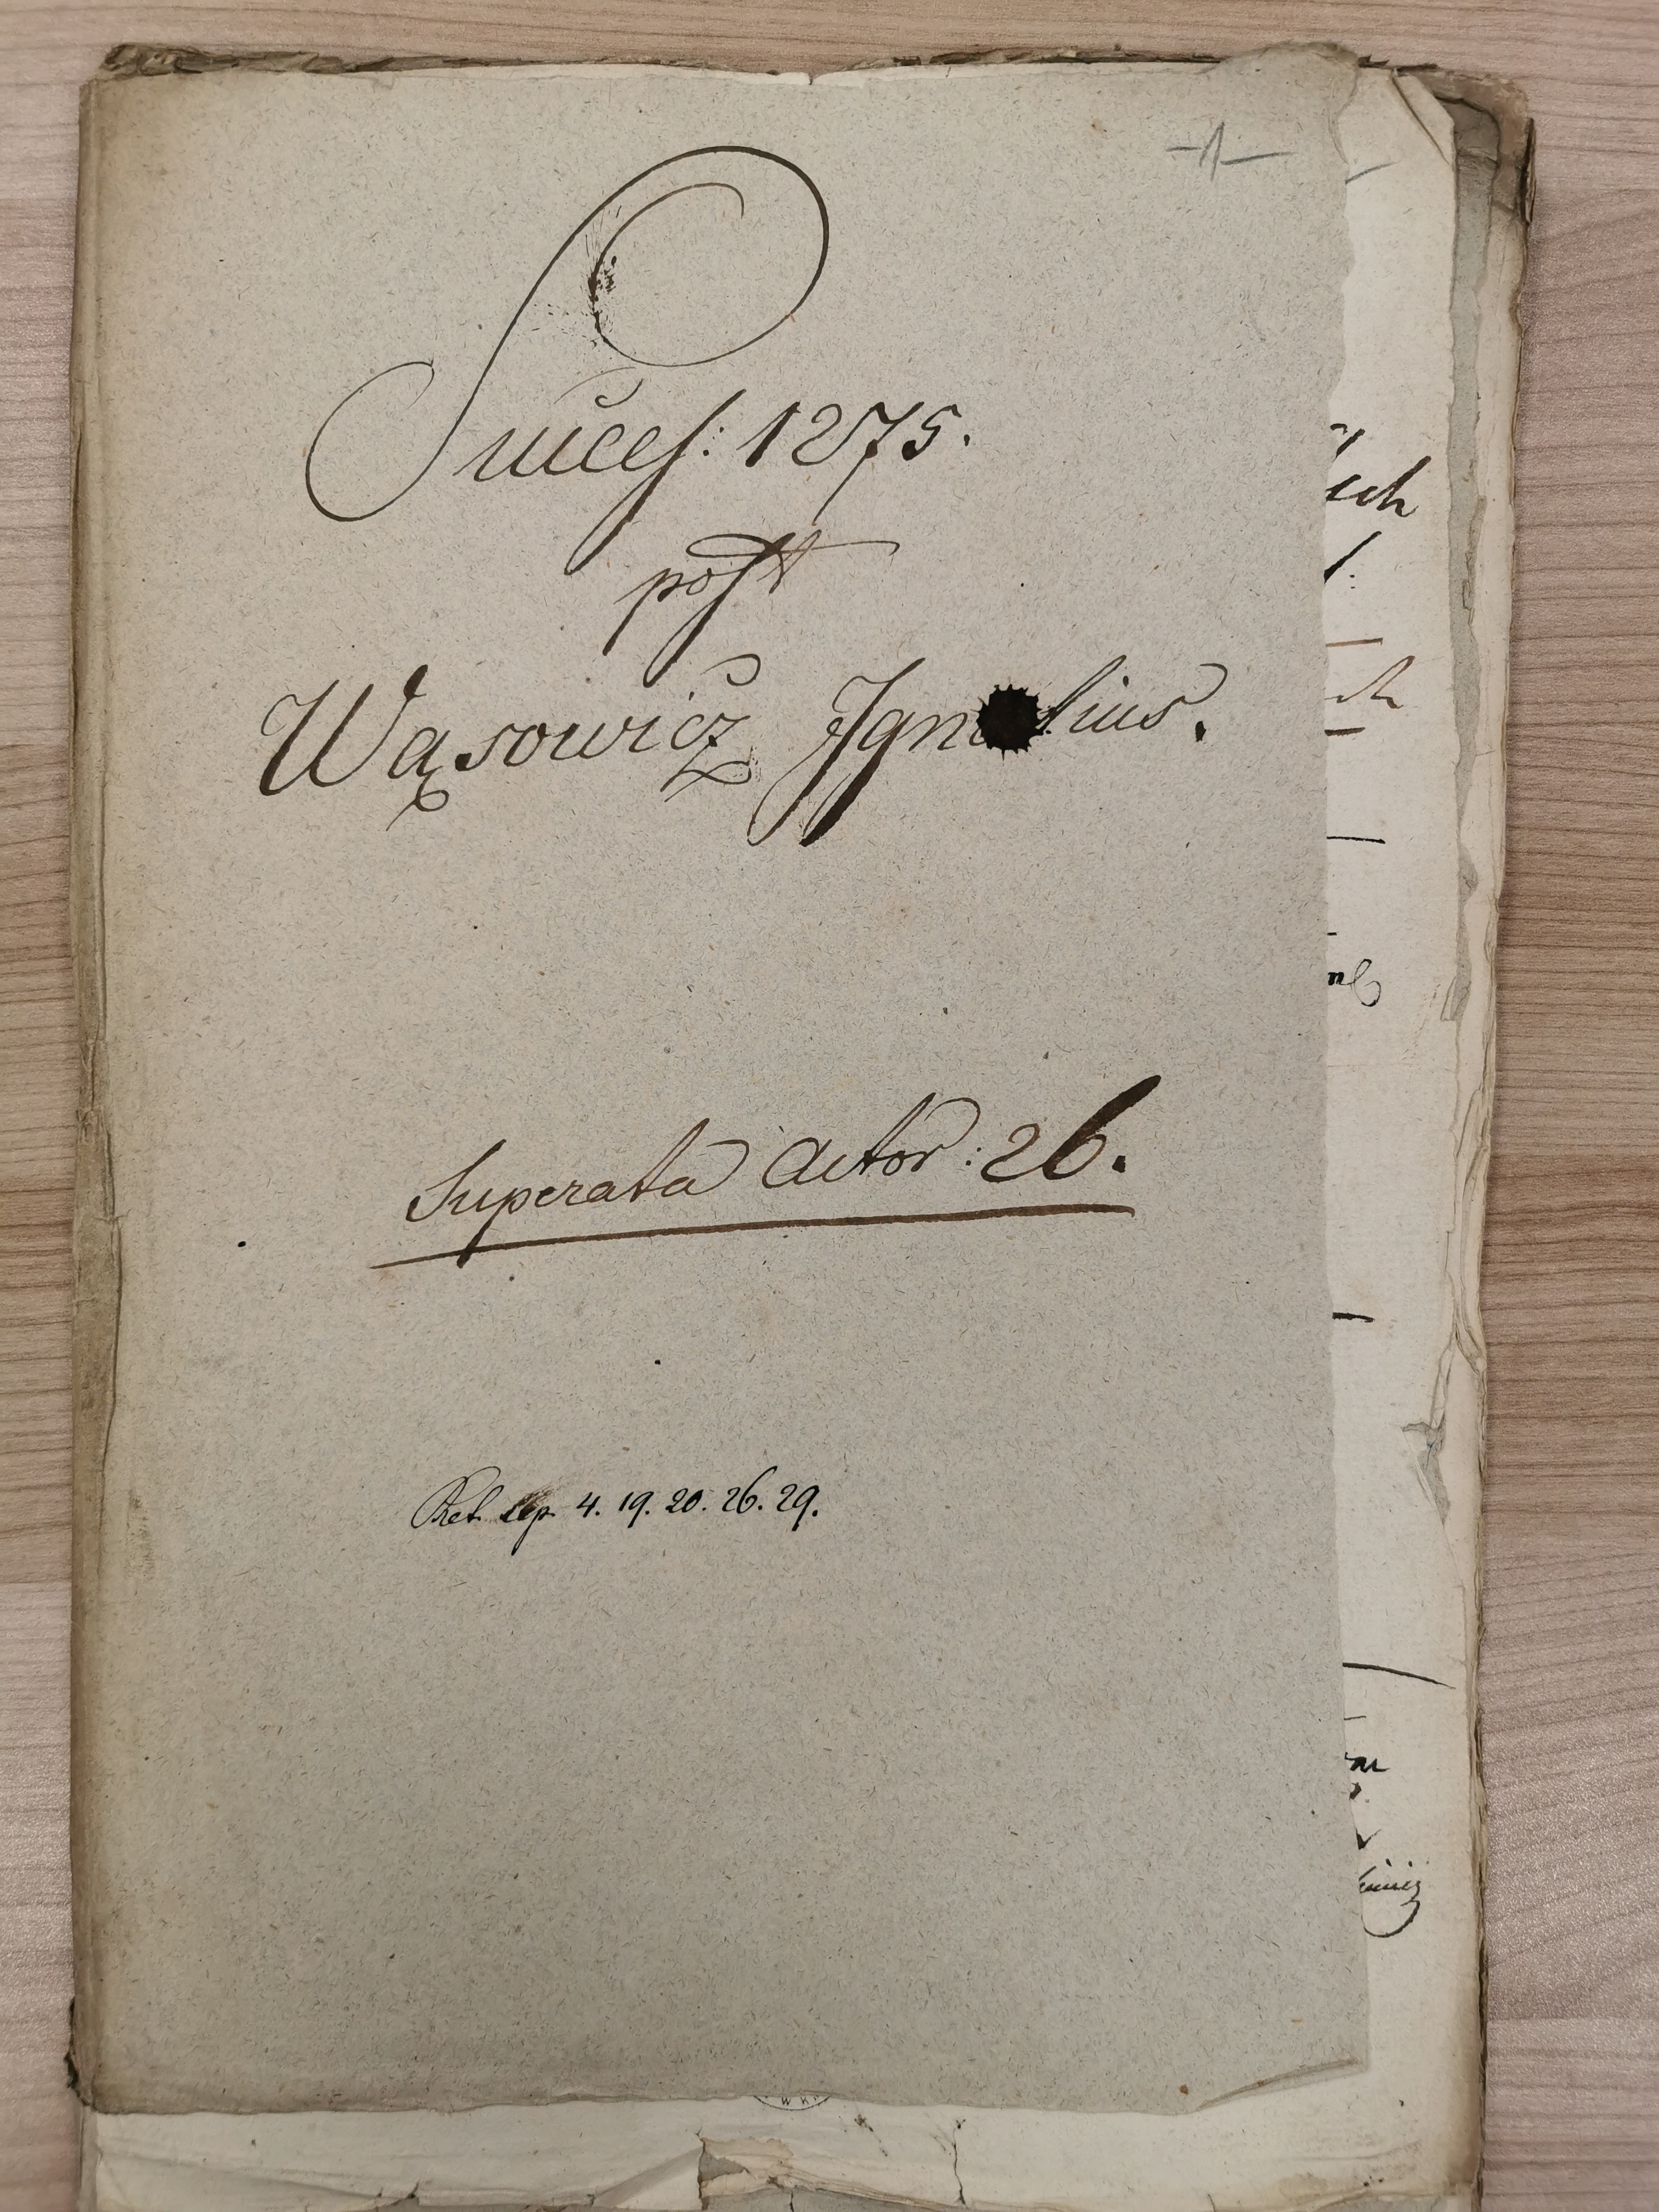 -1-
Succeſ: 1275.
poſt
Wąsowicz Ignatius.
Superata Actor: 26.
Ret. 4. 19. 20. 26. 29.